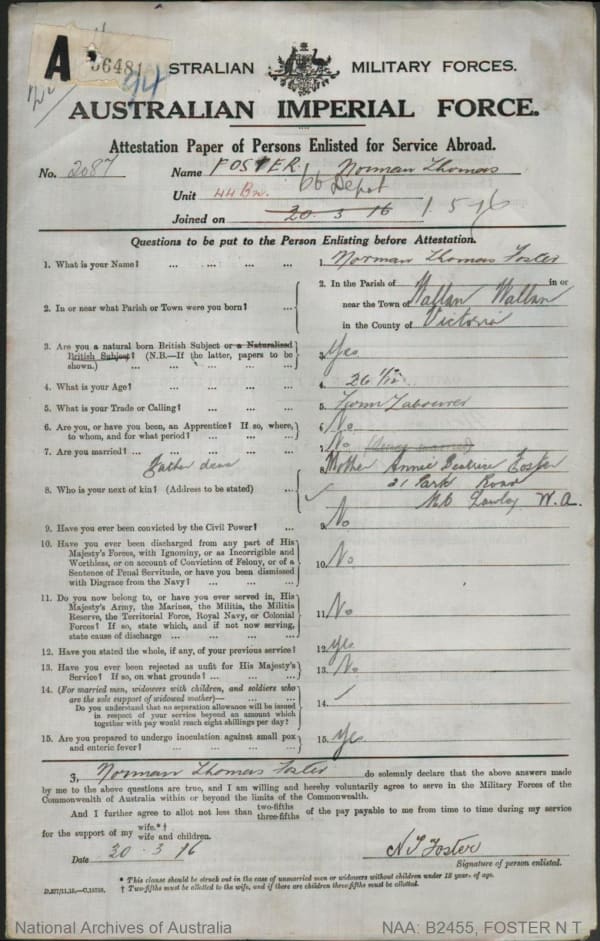 A 56481
AUSTRALIAN MILITARY FORCES.
AUSTRALIAN IMPERIAL FORCE.
Attestation Paper of Persons Enlisted for Service Abroad.
No. 2087 Name FOSTER Norman Thomas
Unit 44 Bn. 66 Depot
Joined on 20.3.16 1.5.16
Questions to be put to the Person Enlisting before Attestation.
1. What is your Name? ... ... ... ... 1. Norman Thomas Foster
2. In or near what Parish or Town were you born? ... 2. In the Parish of in or
near the Town of Wallan Wallan
in the County of Victoria
3. Are you a natural born British Subject or a Naturalised
British Subject? (N.B.—If the latter, papers to be
shown.) ... ... ... ... 3. Yes
4. What is your Age? ... ... ... 4. 26 1/12
5. What is your Trade or Calling? ... ... ... 5. Farm Labourer
6. Are you, or have you been, an Apprentice? If so, where,
to whom, and for what period? ... ... ... 6. No
7. Are you married? ... ... ... ... 7. No
Father dead
8. Who is your next of kin? (Address to be stated) ... 8. Mother Annie Beatrice Foster
21 Park Road
Mt Lawley W.A.
9. Have you ever been convicted by the Civil Power? ... 9. No
10. Have you ever been discharged from any part of His
Majesty's Forces, with Ignominy, or as Incorrigible and
Worthless, or on account of Conviction of Felony, or of a
Sentence of Penal Servitude, or have you been dismissed
with Disgrace from the Navy? ... ... ... 10. No
11. Do you now belong to, or have you ever served in, His
Majesty's Army, the Marines, the Militia, the Militia
Reserve, the Territorial Force, Royal Navy, or Colonial
Forces? If so, state which, and if not now serving,
state cause of discharge ... ... ... ... 11. No
12. Have you stated the whole, if any, of your previous service? 12. Yes
13. Have you ever been rejected as unfit for His Majesty's
Service? If so, on what grounds? ... ... ... 13. No
14. (For married men, widowers with children, and soldiers who
are the sole support of widowed mother)—
Do you understand that no separation allowance will be issued
in respect of your service beyond an amount which
together with pay would reach eight shillings per day? 14. /
15. Are you prepared to undergo inoculation against small pox
and enteric fever? ... ... ... ... 15. Yes
I, Norman Thomas Foster do solemnly declare that the above answers made
by me to the above questions are true, and I am willing and hereby voluntarily agree to serve in the Military Forces of the
Commonwealth of Australia within or beyond the limits of the Commonwealth.
And I further agree to allot not less than two-fifths three-fifths of the pay payable to me from time to time during my service
for the support of my wife.*† wife and children.
Date 20 3 16 N T Foster
Signature of person enlisted.
* This clause should be struck out in the case of unmarried men or widowers without children under 18 years of age.
† Two-fifths must be allotted to the wife, and if there are children three-fifths must be allotted.
National Archives of Australia NAA: B2455, FOSTER N T